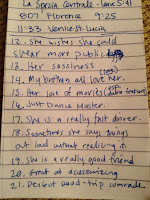 La Spezia Centrale - Leave 5:41
807 Florence 9:25
11:33 Venice St. Lucia
12. She wishes she could
wear more public
13. Her sassiness
14. My brown all love her.
15. Her love of movies
16. Just Dance Master.
17. She is a really fast driver.
18. Sometimes she says things
out loud without realizing it
19. She is a really good friend
20. Great at accessorizing
21. Perfect road-trip comrade